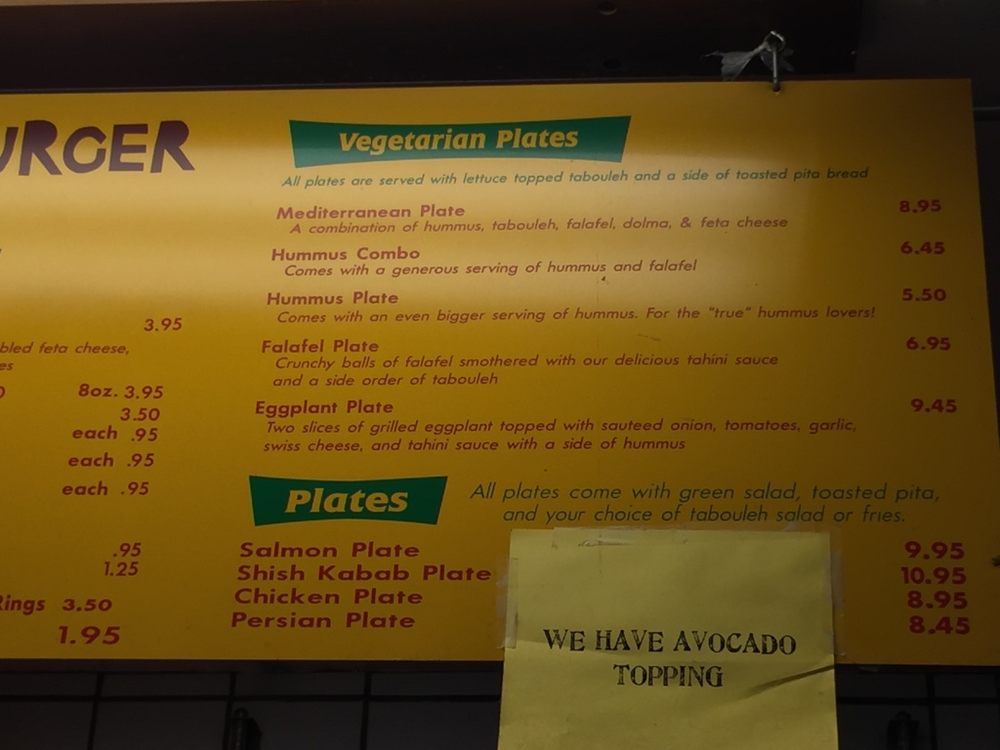 Vegetarian Plates
All plates are served with lettuce topped tabouleh and a side of toasted pita bread
Mediterranean Plate 8.95
A combination of hummus, tabouleh, falafel, dolma, & feta cheese
Hummus Combo 6.45
Comes with a generous serving of hummus and falafel
Hummus Plate 5.50
Comes with an even bigger serving of hummus. For the "true" hummus lovers!
Falafel Plate 6.95
Crunchy balls of falafel smothered with our delicious tahini sauce
and a side order of tabouleh
Eggplant Plate 9.45
Two slices of grilled eggplant topped with sauteed onion, tomatoes, garlic,
swiss cheese, and tahini sauce with a side of hummus
Plates
All plates come with green salad, toasted pita,
and your choice of tabouleh salad or fries.
Salmon Plate 9.95
Shish Kabab Plate 10.95
Chicken Plate 8.95
Persian Plate 8.45
WE HAVE AVOCADO
TOPPING
URGER
3.95
feta cheese,
8oz. 3.95
3.50
each .95
each .95
each .95
.95
1.25
Rings 3.50
1.95